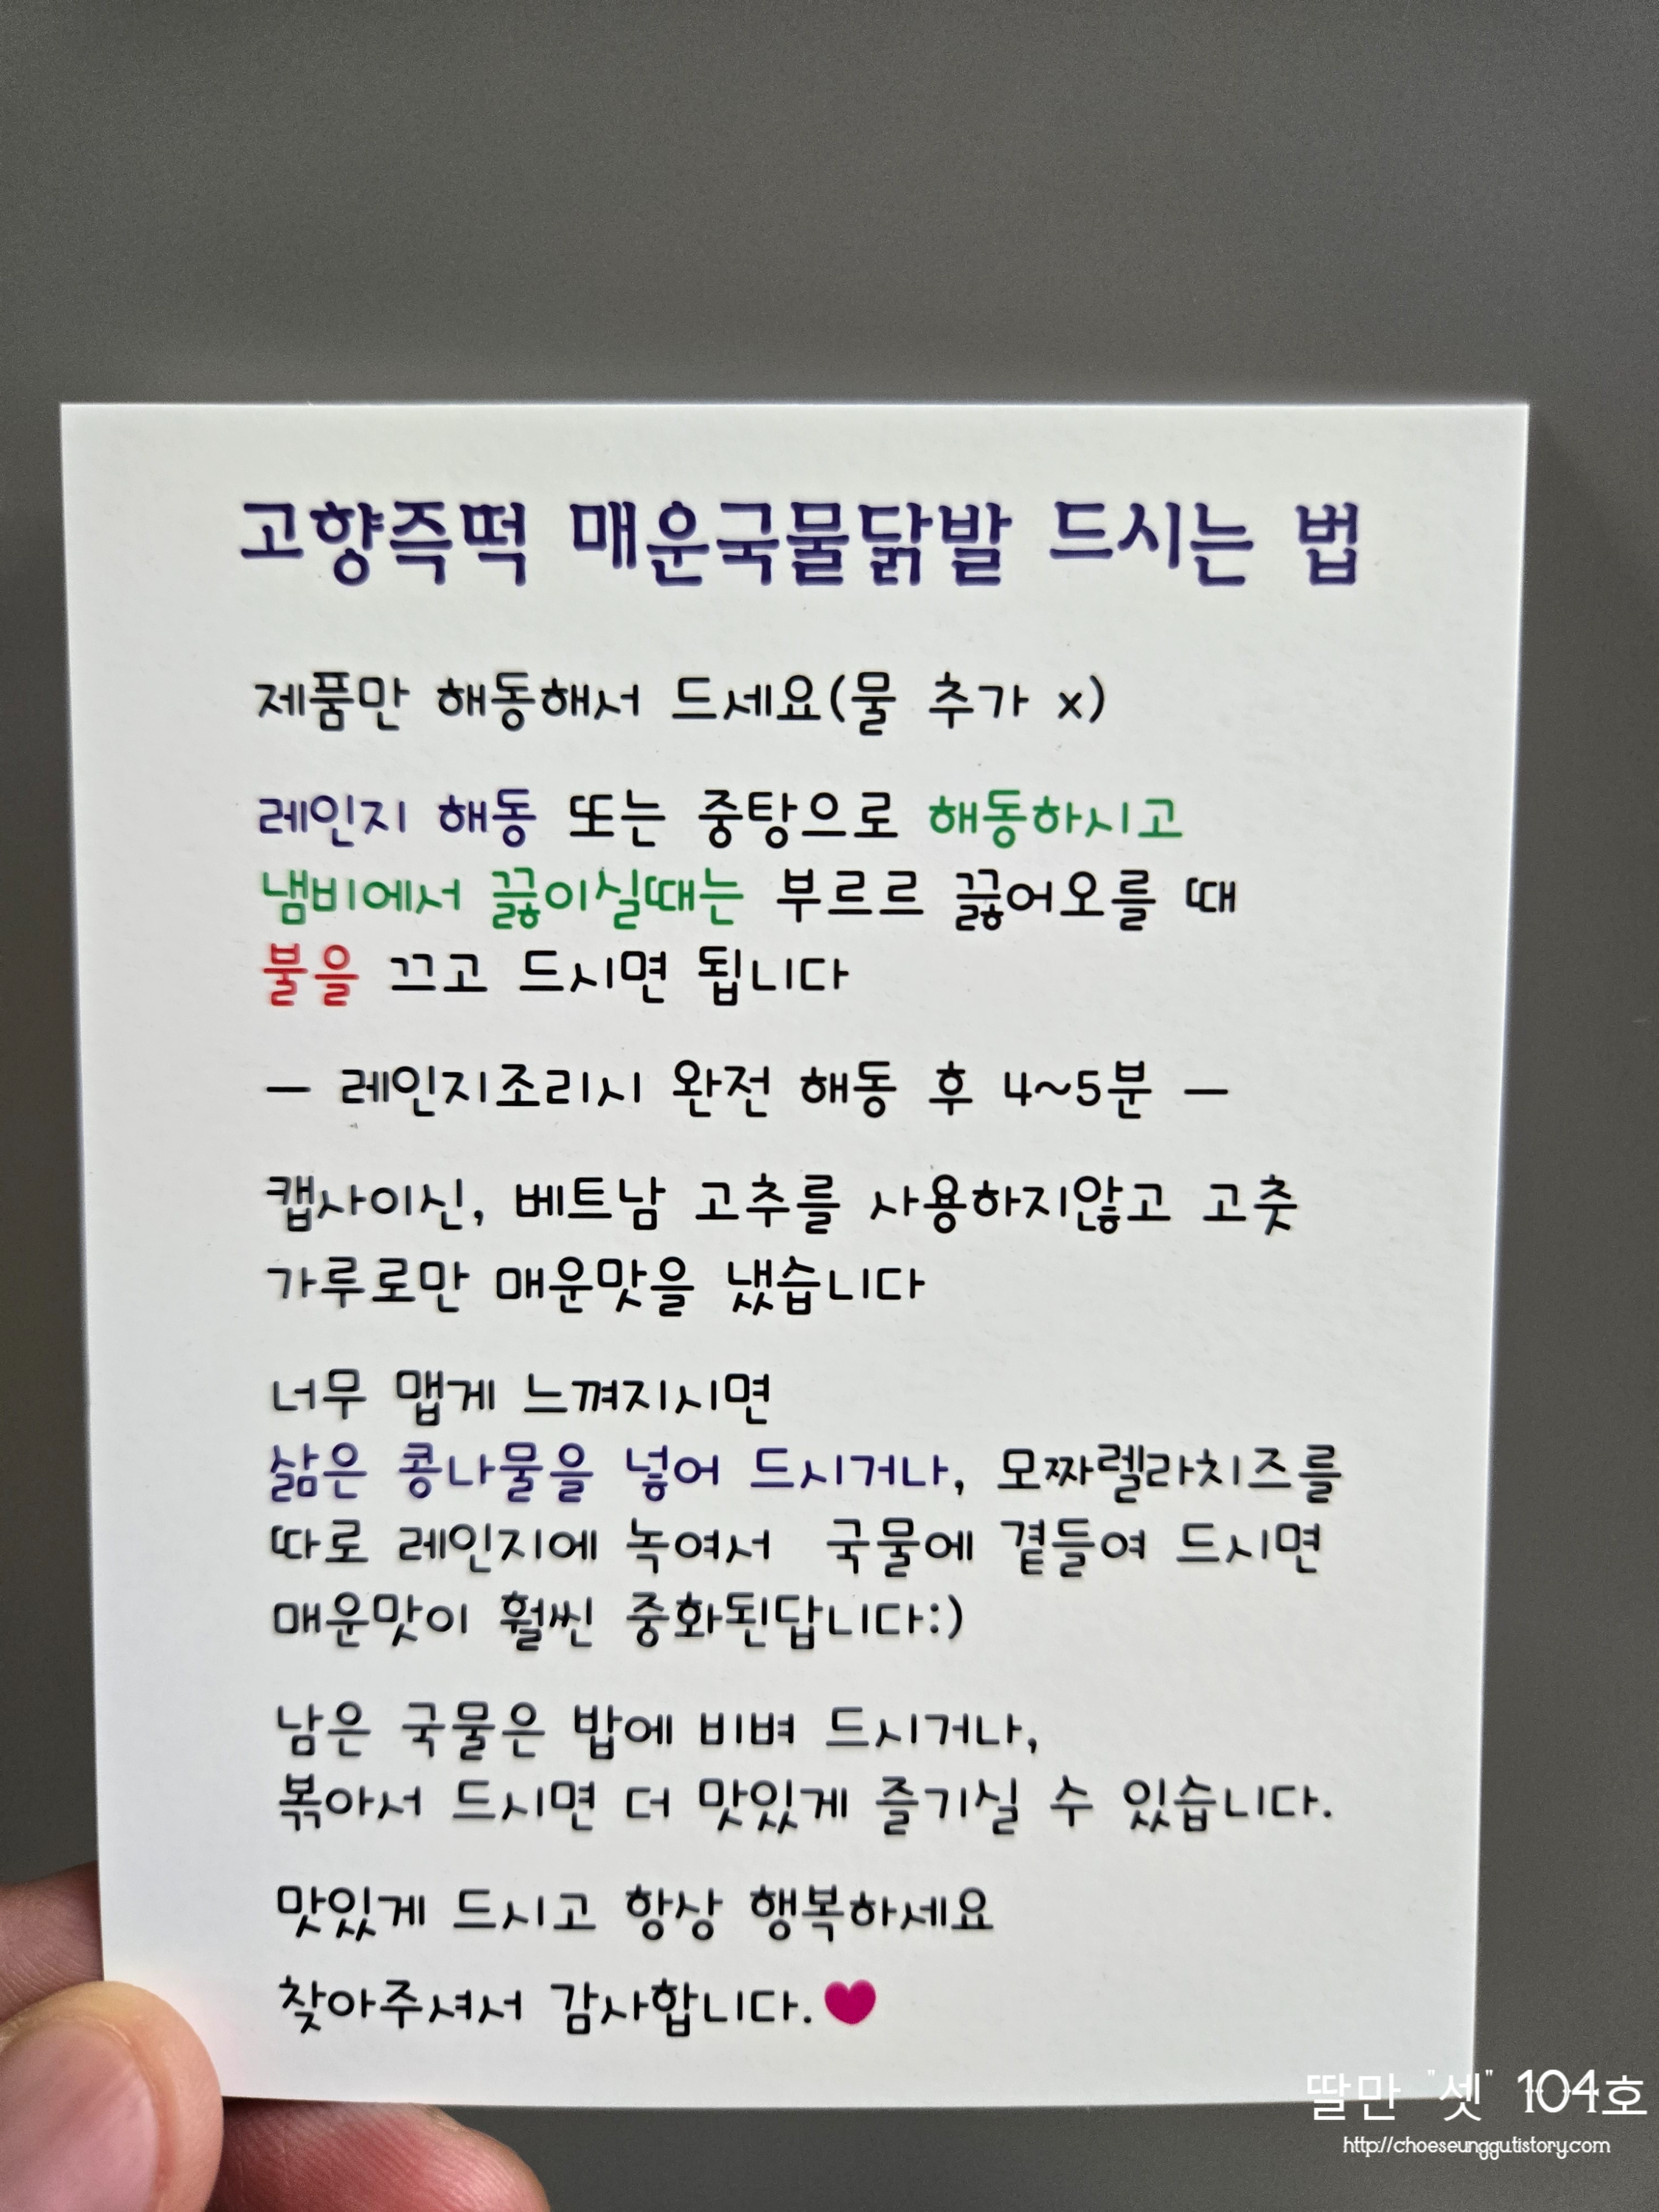 고향즉떡 매운국물닭발 드시는 법
제품만 해동해서 드세요(물 추가 x)
레인지 해동 또는 중탕으로 해동하시고
냄비에서 끓이실때는 부르르 끓어오를 때
불을 끄고 드시면 됩니다
— 레인지조리시 완전 해동 후 4~5분 —
캡사이신, 베트남 고추를 사용하지않고 고춧
가루로만 매운맛을 냈습니다
너무 맵게 느껴지시면
삶은 콩나물을 넣어 드시거나, 모짜렐라치즈를
따로 레인지에 녹여서 국물에 곁들여 드시면
매운맛이 훨씬 중화된답니다:)
남은 국물은 밥에 비벼 드시거나,
볶아서 드시면 더 맛있게 즐기실 수 있습니다.
맛있게 드시고 항상 행복하세요
찾아주셔서 감사합니다.♥
딸만 "셋" 104호
http://choeseunggu.tistory.com